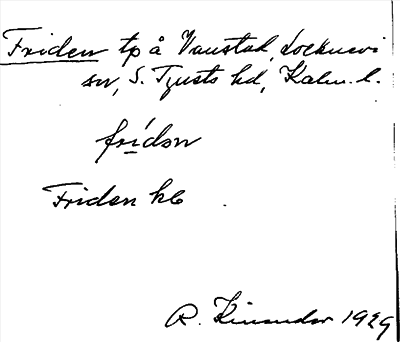 Friden tp å Vanstad, Locknevi
sn, S. Tjusts hd, Kalm. l.
frídən
Friden kb
R. Kinander 1929